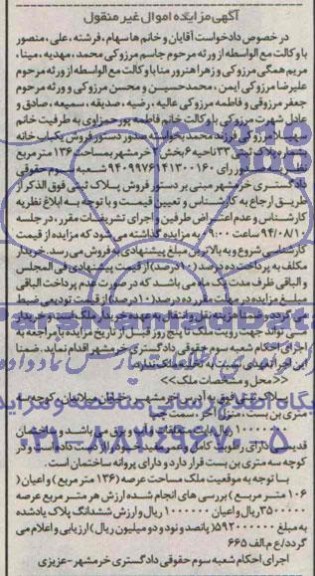 آگهی مزایده اموال غیر منقول
در خصوص دادخواست آقایان و خانم ها سهام، فرشته، علی، منصور
با وکالت مع الواسطه از ورثه مرحوم جاسم مرزوکی محمد، مهدیه، مینا،
مریم همگی مرزوکی و زهرا هنرور منا با وکالت مع الواسطه از ورثه مرحوم
علیرضا مرزوکی ایمن، محمدحسین و محسن مرزوکی و ورثه مرحوم
جعفر مرزوقی و فاطمه مرزوکی عالیه، رضیه، صدیقه، سمیعه، صادق و
عادل شهرت مرزوکی با وکالت خانم فاطمه پورحمزاوی به طرفیت خانم
مرزوکی فرزند محمد بخواسته صدور دستور فروش یکباب خانه
پلاک ثبتی ۳۳ ناحیه ۶ بخش خرمشهر بمساحت ۱۳۶ متر مربع
رای ۹۴۰۹۹۷۶۱۴۱۳۰۰۱۶۰ شعبه سوم حقوقی
دادگستری خرمشهر مبنی بر دستور فروش پلاک ثبتی فوق الذکر از
طریق ارجاع به کارشناس و تعیین قیمت و با توجه به ابلاغ نظریه
کارشناس و عدم اعتراض طرفین و اجرای تشریفات مقرر، در جلسه
۹۴/۰۸/۱۰ ساعت ۰۹:۰۰ به مزایده گذاشته می شود که مزایده از قیمت
کارشناسی شروع و به بالاترین مبلغ پیشنهادی به فروش می رسد. خریدار
مکلف به پرداخت ده درصد (۱۰درصد) از قیمت پیشنهادی فی المجلس
و الباقی ظرف مدت یک ماه می باشد که در صورت عدم پرداخت الباقی
مبلغ مزایده در مهلت مقرر ده درصد (۱۰درصد) از قیمت تودیعی ضبط
می گردد و ضمنا هزینه نقل و انتقال به عهده خریدار ملک است و خریدار
می تواند جهت رویت ملک تا پنج روز قبل از تاریخ مزایده با مراجعه به
اجرای احکام شعبه سوم حقوقی دادگستری خرمشهر اقدام نماید. ضمنا
این اجرا تعهدی نسبت به تخلیه ملک ندارد.
<<محل و مشخصات ملک>>
پلاک ثبتی فوق به آدرس خرمشهر، خیابان میلانیان، کوچه سه
متری بن بست، منزل آخر، سمت چپ
دارای انشعابات آب و برق می باشد و ساختمان
قدیمی دارای رطوبت کامل و عمر مفید خود را از دست داده است و در
کوچه سه متری بن بست قرار دارد و دارای پروانه ساختمان است.
با توجه به موقعیت ملک مساحت عرصه (۱۳۶ متر مربع) و اعیان (
۱۰۶ متر مربع) بررسی های انجام شده ارزش هر متر مربع عرصه
۳۵۰۰۰۰۰ ریال و اعیان ۱۰۰۰۰۰۰ ریال و ارزش ششدانگ پلاک یادشده
به مبلغ ۵۹۲۰۰۰۰۰۰ (پانصد و نود و دو میلیون ریال) ارزیابی و اعلام می
گردد/ع م الف ۶۶۵
اجرای احکام شعبه سوم حقوقی دادگستری خرمشهر-عزیزی
۰۲۱-۸۸۳۴۹۶۷۰-۵